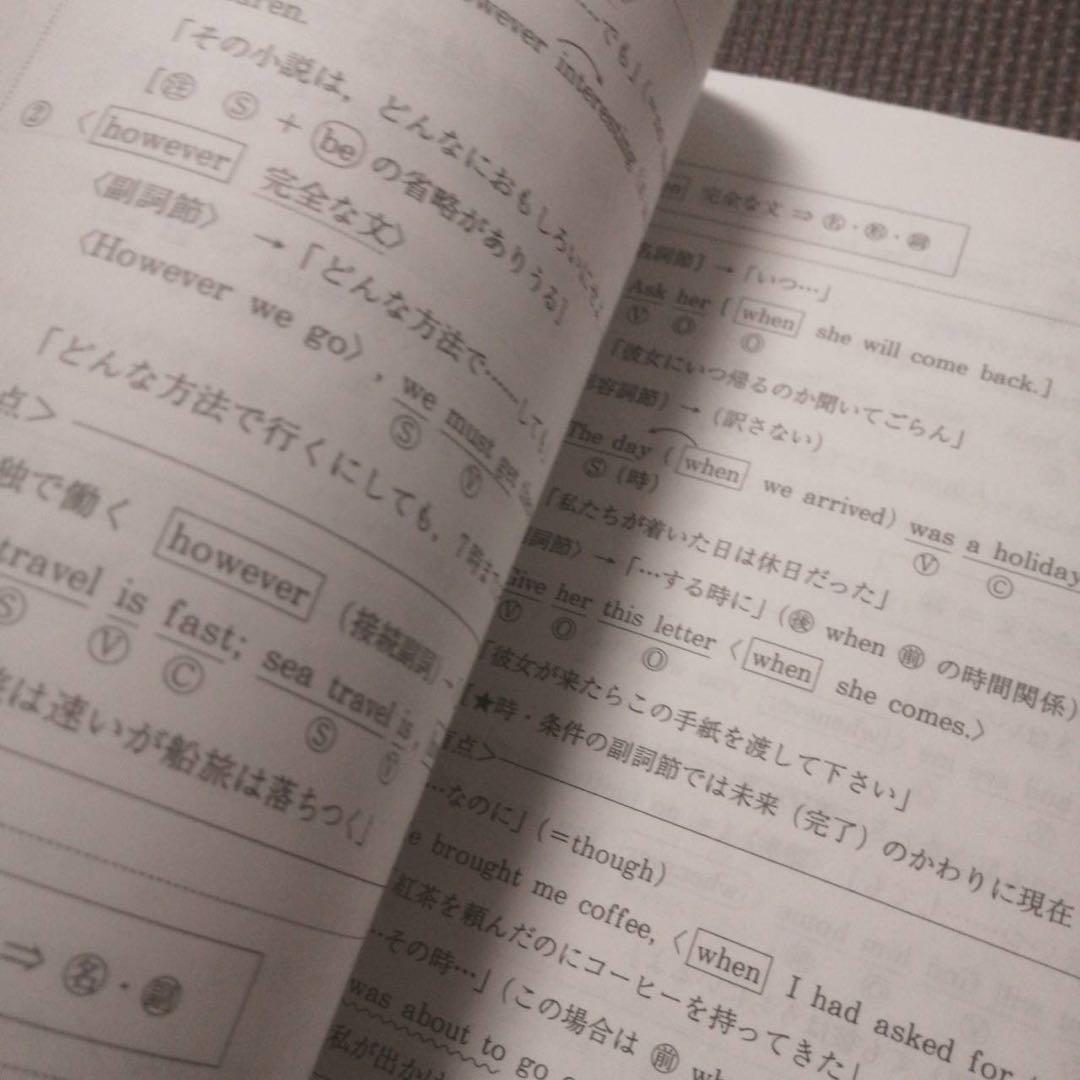 ……でも」
however interesting
「その小説は，どんなにおもしろいにせよ
[㊟ Ⓢ ＋ be の省略がありうる]
② 〈however 完全な文〉
〈副詞節〉 → 「どんな方法で……しても
〈However we go〉, we must get
Ⓢ Ⓥ
「どんな方法で行くにしても，7時
点＞
独で働く however (接続副詞)
travel is fast; sea travel is,
Ⓢ Ⓥ Ⓒ Ⓢ Ⓥ
は速いが船旅は落ちつく」
⇒ ㊔・㊙
完全な文 ⇒ 名・形・副
名詞節] → 「いつ…」
Ask her [when she will come back.]
Ⓥ Ⓞ Ⓞ
「彼女にいつ帰るのか聞いてごらん」
形容詞節) → (訳さない)
The day (when we arrived) was a holiday
Ⓢ (時) Ⓥ Ⓒ
「私たちが着いた日は休日だった」
副詞節〉 → 「…する時に」(後 when 前 の時間関係)
Give her this letter 〈when she comes.〉
Ⓥ Ⓞ Ⓞ
「彼女が来たらこの手紙を渡して下さい」
[★時・条件の副詞節では未来（完了）のかわりに現在
盲点＞
…なのに」(＝though)
e brought me coffee, 〈when I had asked for
紅茶を頼んだのにコーヒーを持ってきた」
…その時…」(この場合は 前 wh
was about to go
私が出かけ